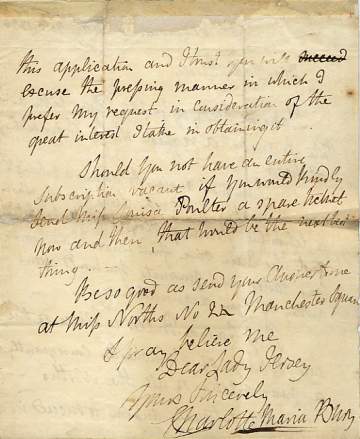 this application and I trust you will succeed
excuse the pressing manner in which I
prefer my request in Consideration of the
great interest I take in obtaining it
Should you not have an entire
Subscription vacant if you would kindly
send Miss Louisa Poulter a spare ticket
now and then, that would be the next best
thing.
Be so good as send your answer to me
at Miss Norths No Manchester Square
I pray believe me
Dear Lady Jersey
Yours Sincerely
Charlotte Maria Bury